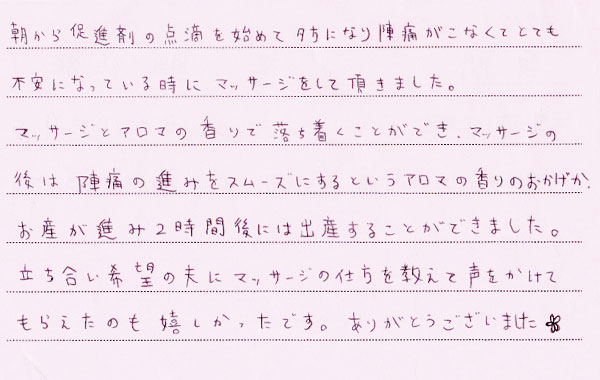 朝から促進剤の点滴を始めて夕方になり陣痛がこなくてとても
不安になっている時にマッサージをして頂きました。
マッサージとアロマの香りで落ち着くことができ、マッサージの
後は陣痛の進みをスムーズにするというアロマの香りのおかげか、
お産が進み2時間後には出産することができました。
立ち合い希望の夫にマッサージの仕方を教えて声をかけて
もらえたのも嬉しかったです。ありがとうございました